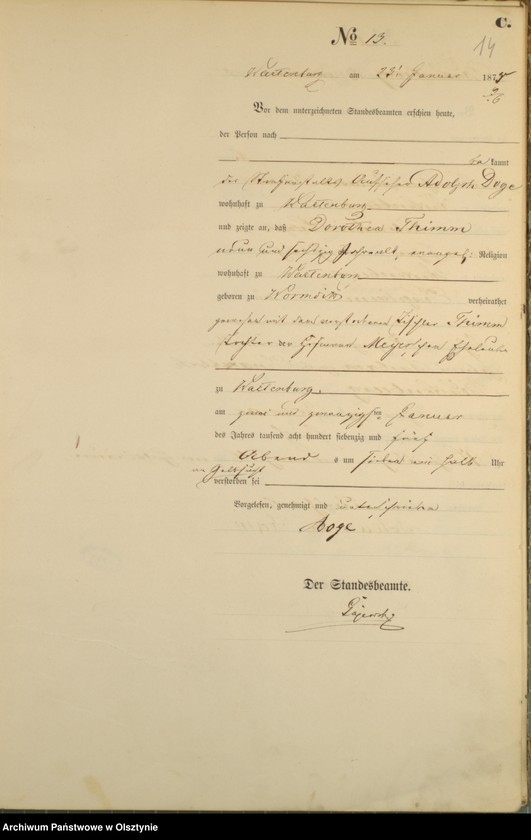 C.
No 13.
14
Wartenburg am 23ten Januar 1875
Vor dem unterzeichneten Standesbeamten erschien heute,
der Person nach
bekannt
der Strafanstalts Aufseher Adolph Doge
wohnhaft zu Wartenburg
und zeigte an, daß Dorothea Thimm
neun und sechzig Jahre alt, evangel: Religion
wohnhaft zu Wartenburg
geboren zu Wormditt verheirathet
gewesen mit dem verstorbenen Tischler Thimm
Tochter der Meyer'schen Eheleute
zu Wartenburg
am zwei und zwanzigsten Januar
des Jahres tausend acht hundert siebenzig und fünf
Abends um sieben ein halb Uhr
an Gelbsucht
verstorben sei
Vorgelesen, genehmigt und unterschrieben
Doge
Der Standesbeamte.
Archiwum Państwowe w Olsztynie